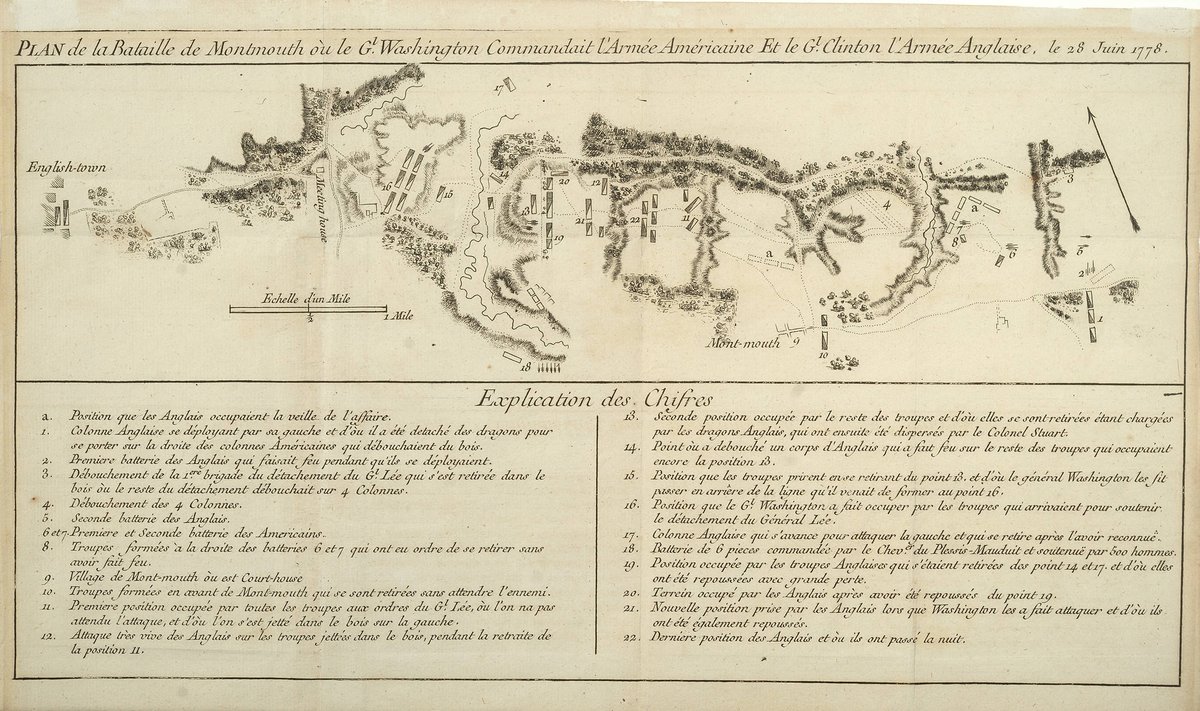 PLAN de la Bataille de Montmouth où le Gl. Washington Commandait l'Armée Américaine Et le Gl. Clinton l'Armée Anglaise, le 28 Juin 1778.
English-town
Meeting house
17
16
15
14
20
12
13
21
19
22
11
4
3
a
7
8
6
5
2
1
a
Echelle d'un Mile
½
1 Mile
18
Mont-mouth 9
10
Explication des Chifres
a. Position que les Anglais occupaient la veille de l'affaire.
1. Colonne Anglaise se déployant par sa gauche et d'où il a été detaché des dragons pour
se porter sur la droite des colonnes Américaines qui débouchaient du bois.
2. Premiere batterie des Anglais qui faisait feu pendant qu'ils se déployaient.
3. Débouchement de la 1ere brigade du détachement du Gl. Lée qui s'est retirée dans le
bois où le reste du détachement débouchait sur 4 Colonnes.
4. Débouchement des 4 Colonnes.
5. Seconde batterie des Anglais.
6 et 7. Premiere et Seconde batterie des Americains.
8. Troupes formées a la droite des batteries 6 et 7 qui ont eu ordre de se retirer sans
avoir fait feu.
9. Village de Mont-mouth où est Court-house
10. Troupes formées en avant de Mont-mouth qui se sont retirées sans attendre l'ennemi.
11. Premiere position occupée par toutes les troupes aux ordres du Gl. Lée, où l'on na pas
attendu l'attaque, et d'où l'on s'est jetté dans le bois sur la gauche.
12. Attaque très vive des Anglais sur les troupes jettées dans le bois, pendant la retraite de
la position 11.
13. Seconde position occupée par le reste des troupes et d'où elles se sont retirées étant chargées
par les dragons Anglais, qui ont ensuite été dispersés par le Colonel Stuart.
14. Point où a debouché un corps d'Anglais qui a fait feu sur le reste des troupes qui occupaient
encore la position 13.
15. Position que les troupes prirent en se retirant du point 13. et d'où le général Washington les fit
passer en arrière de la ligne qu'il venait de former au point 16.
16. Position que le Gl. Washington a fait occuper par les troupes qui arrivaient pour soutenir
le détachement du Général Lée.
17. Colonne Anglaise qui s'avance pour attaquer la gauche et qui se retire après l'avoir reconnuë.
18. Batterie de 6 pieces commandée par le Chever. du Plessis-Mauduit et soutenuë par 600 hommes.
19. Position occupée par les troupes Anglaises qui s'étaient retirées des point 14 et 17. et d'où elles
ont été repoussées avec grande perte.
20. Terrein occupé par les Anglais après avoir été repoussés du point 19.
21. Nouvelle position prise par les Anglais lors que Washington les a fait attaquer et d'où ils
ont été également repoussés.
22. Derniere position des Anglais et où ils ont passé la nuit.